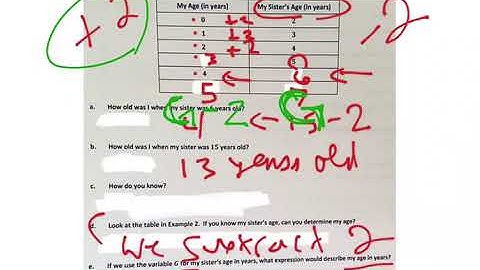 + 2
My Age (in years) My Sister's Age (in years)
2
0 +2 2
1 +2 3
2 +2
3
4
5 7
a. How old was I when my sister was 6 years old?
2 - 2
b. How old was I when my sister was 15 years old?
13 years old
c. How do you know?
d. Look at the table in Example 2. If you know my sister's age, can you determine my age?
We subtract 2
e. If we use the variable G for my sister's age in years, what expression would describe my age in years?